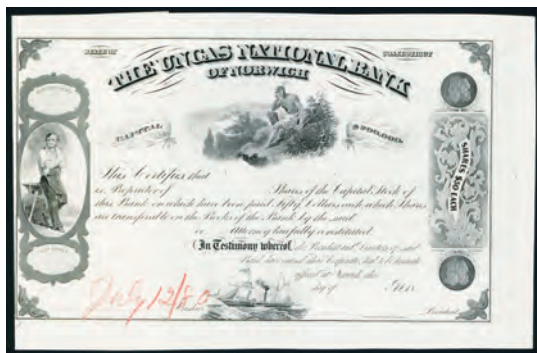 STATE OF CONNECTICUT
THE UNCAS NATIONAL BANK
OF NORWICH
CAPITAL $200,000.
This Certifies that
is Proprietor of Shares of the Capital Stock of
this Bank on which have been paid Fifty Dollars each which Shares
are transferable on the Books of the Bank by the said
or Attorney lawfully constituted.
In Testimony whereof, the President and Directors of said
Bank have caused this Certificate to be
at Norwich this
day of
President
SHARES $50 EACH
July 12/80